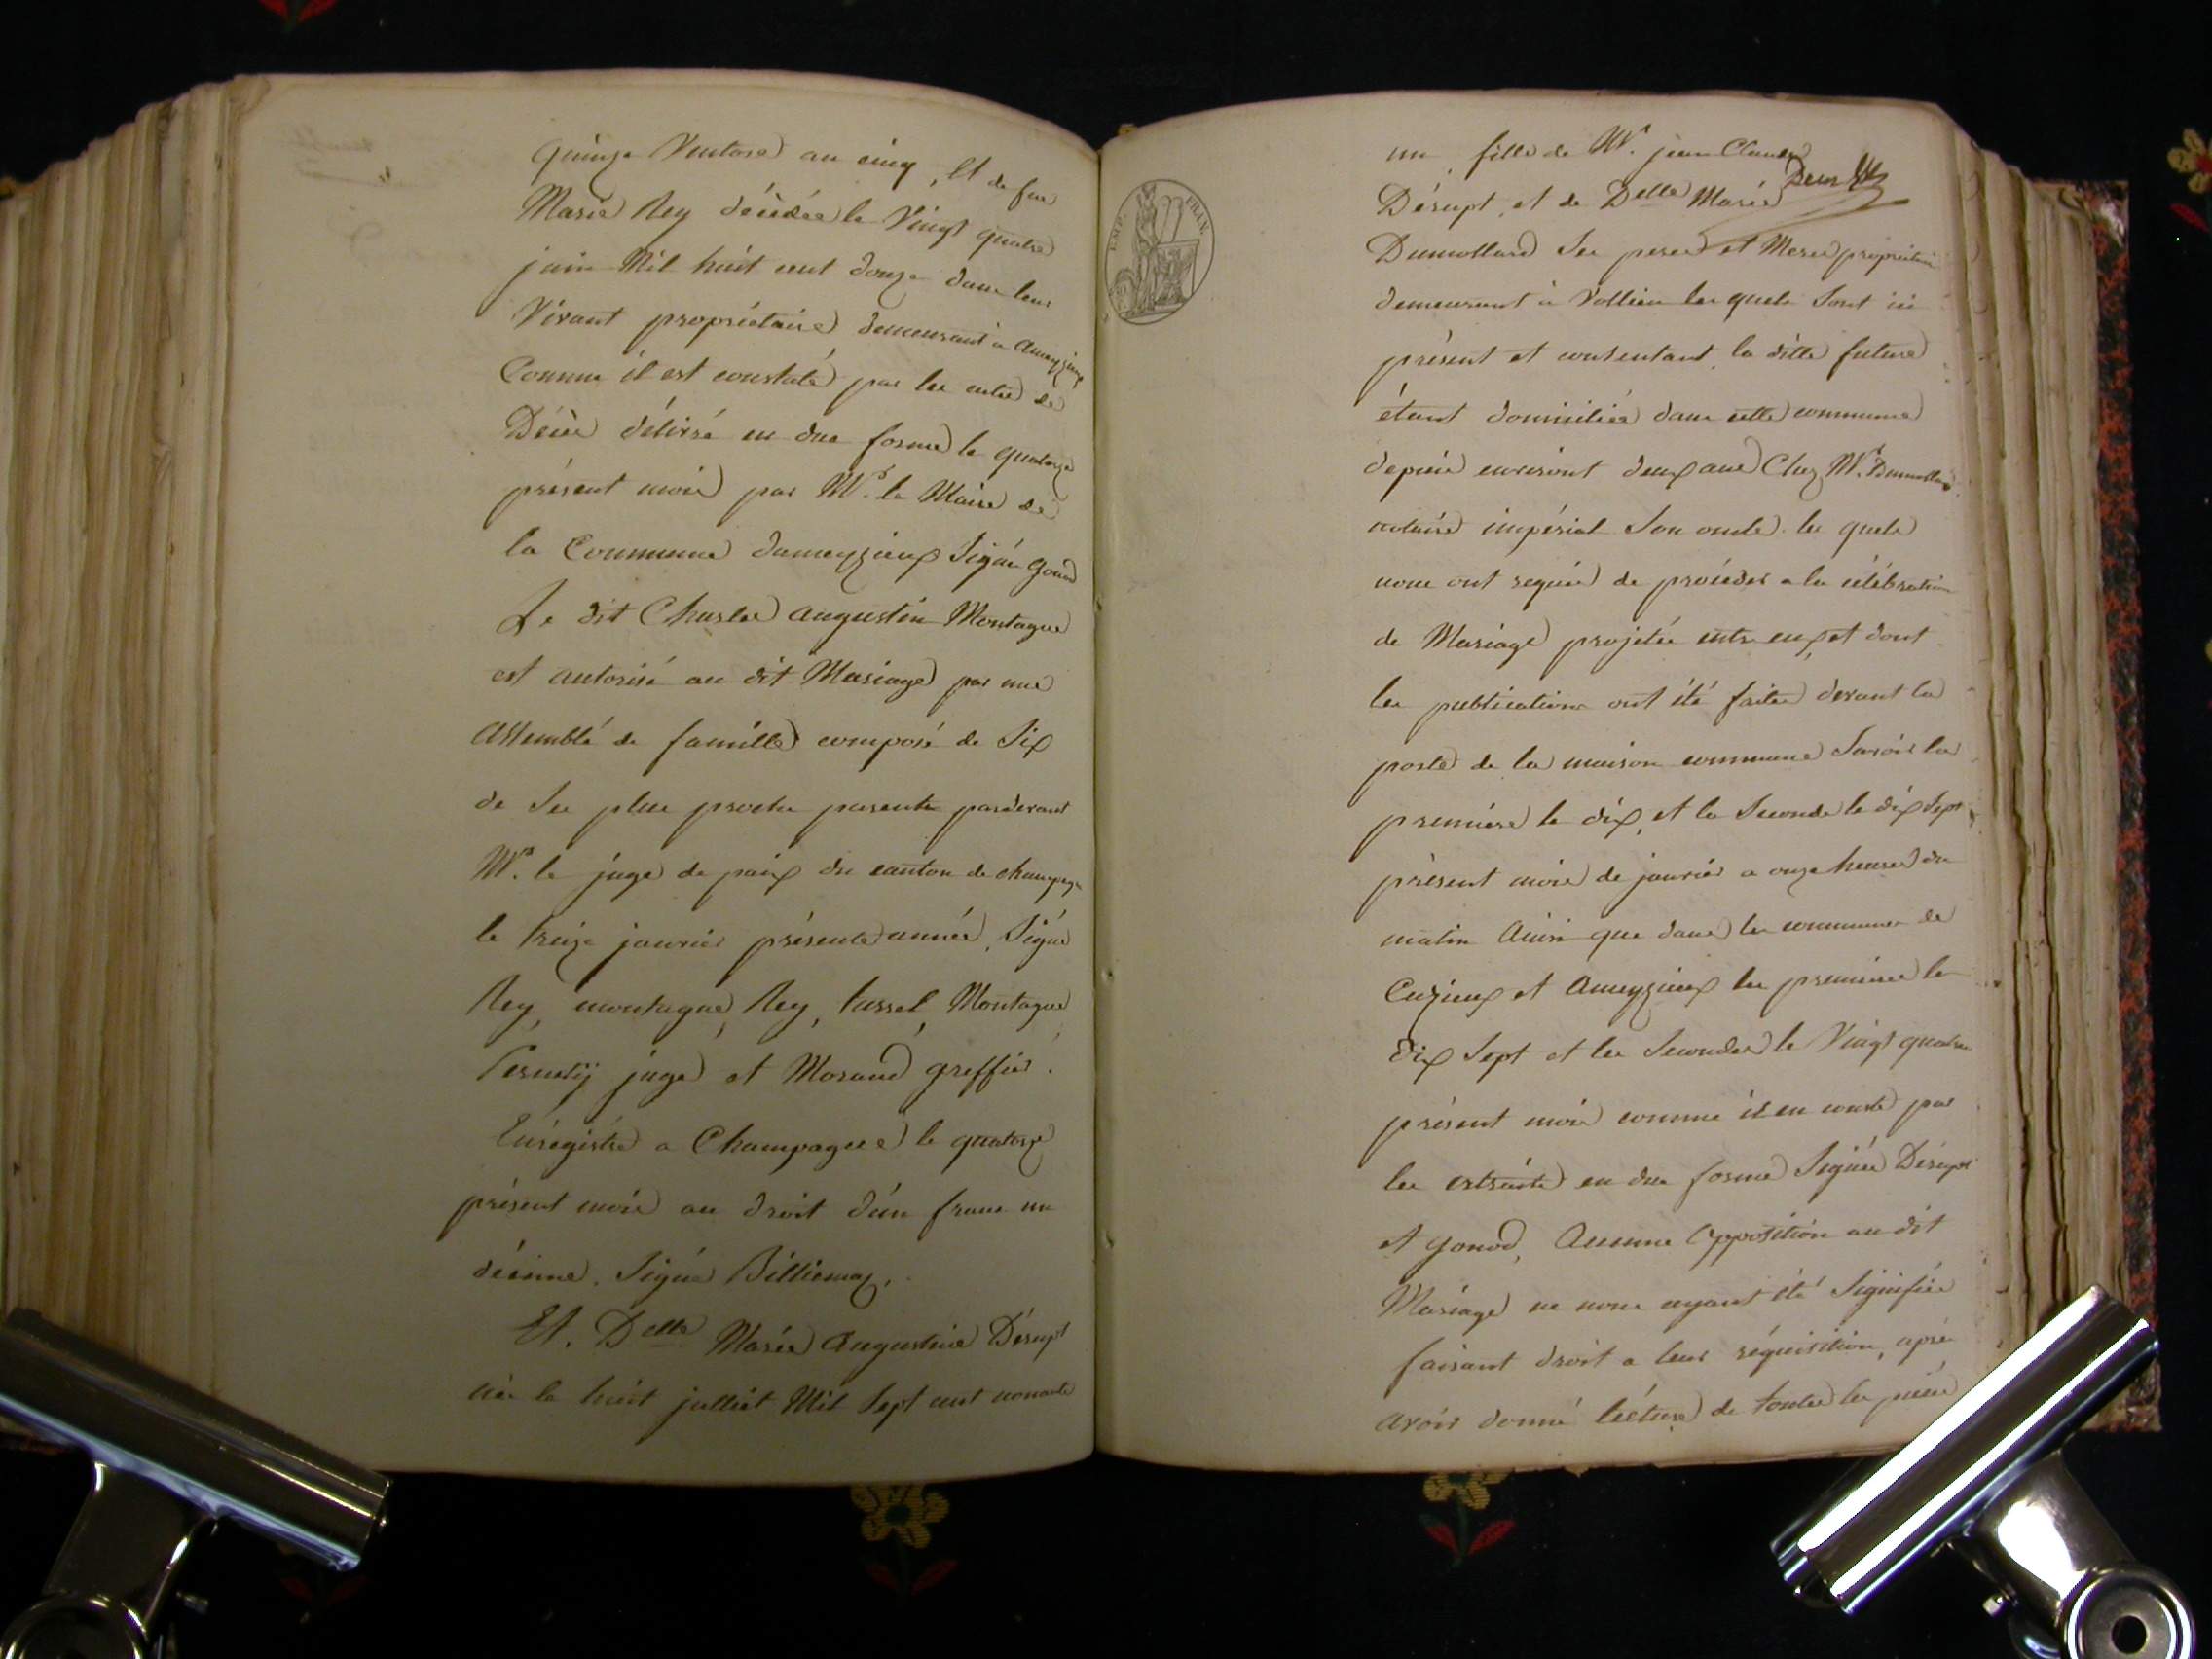 quinze Ventose an cinq, Et de fue
Marie Rey décédée le Vingt quatre
juin Mil huit cent douze dans leur
Vivant propriétaire demeurant à Ameyzieux
Comme il est constaté par les extrè de
Décès délivré en due forme le quatorze
présent mois par Mr. le Maire de
la Commune dameyzieux Signé gonod
Le dit Charles augustin Montagne
est autorisé au dit Mariage par une
Assemblé de famille composé de Six
de Ses plus proche parents pardevant
Mr. le juge de paix du canton de champagne
le treize janvier présente année, Signé
Rey, montagne, Rey, tussel, Montagne
juge et Morand greffier.
Enregistré a Champagne le quatorze
présent mois au droit d'un franc un
décime. Signé Billiemaz,
Et. Delle Marie Augustine Dérupt
née le huit julliet Mil Sept cent nonante
un, fille de Mr. jean Claude
Dérupt, et de Delle Marie
Dumollard Ses pere et Mere propriétaire
demeurant à Vollien les quels Sont ici
présent et consentant, la ditte future
étant domiciliée dans cette commune
depuis environt deux ans Chez Mr. Dumollard
notaire impérial Son oncle. les quels
nous ont requis de procéder a la célébration
de Mariage projetée entre eux, et dont
les publications ont été faites devant la
porte de la maison commune Savoir la
première le dix, et la Seconde le dix Sept
présent mois de janvier a onze heures du
matin Ainsi que dans les communes de
Cuzieux et Ameyzieux les premières le
Dix Sept et les Secondes le Vingt quatre
présent mois comme il en conste par
les extraits en due forme Signés Dérupt
et gonod, Aucune Opposition au dit
Mariage ne nous ayant été Signifiée
faisant droit a leur réquisition, après
avoir donné lécture de toutes les pièces
EMP. FRAN.